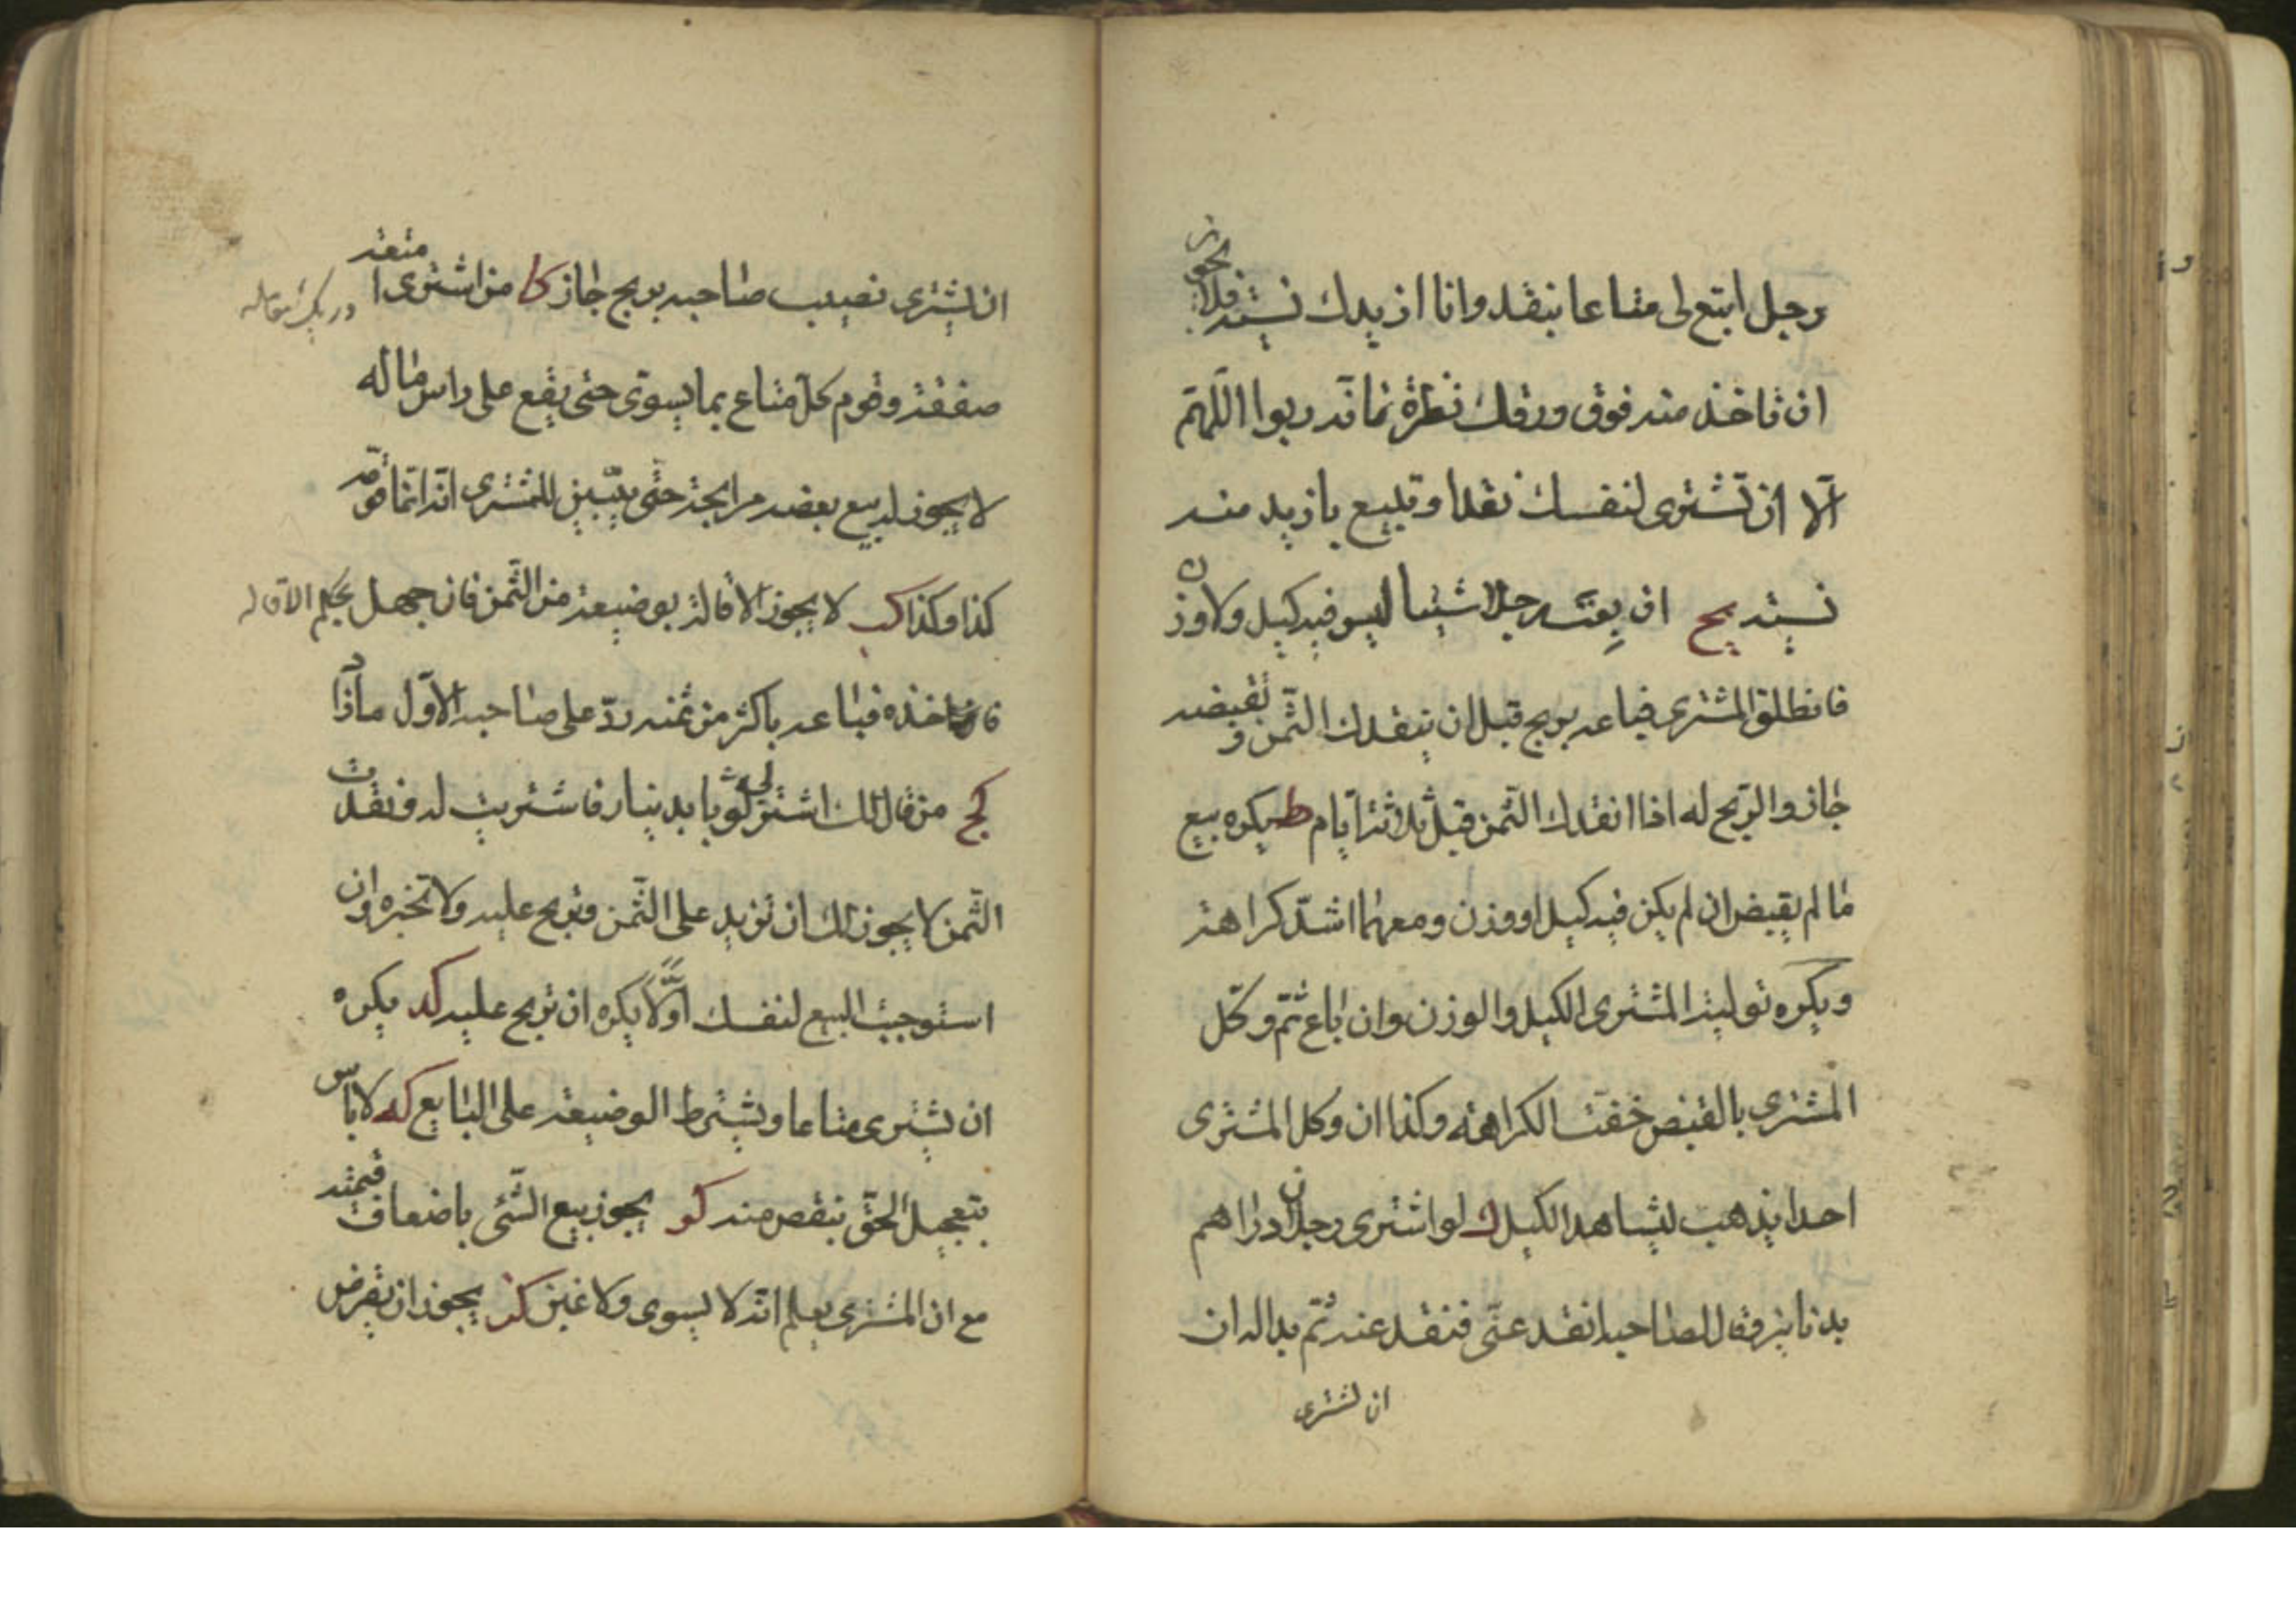 رجل ابتع لی متاعا بنقد وانا ازیدك نسیئة فلا یجوز
ان تاخذ منه فوق ورقك نظرة فانه ربوا اللهم
الا ان تشتری لنفسك نقدا وتبیع بازید منه
نسیئة یح ان بعته رجلا شیئا لیس فیه کیل ولا وزن
فانطلق المشتری فباعه بربح قبل ان ینقدك الثمن و تقبضه
جاز والربح له اذا انقدك الثمن قبل ثلاثة ایام یط یکره بیع
ما لم یقبض ان لم یکن فیه کیل او وزن ومعهما اشد کراهة
ویکره تولیة المشتری الکیل والوزن وان باع ثم وکل
المشتری بالقبض خفت الکراهة وکذا ان وکل المشتری
احدا یذهب لیشاهد الکیل ك لو اشتری رجلان دراهم
بدنانیر وقال لصاحبه انقد عنی فنقد عنه ثم بدا له ان
ان یشتری
ان یشتری نصیب صاحبه بربح جاز کا من اشتری امتعة
صفقة وقوم کل متاع بما یسوی حتی یقع علی راس ماله
لا یجوز له بیع بعضه مرابحة حتی یبین للمشتری انه انما قومه
کذا وکذا کب لا یجوز الاقالة بوضیعة من الثمن فان جهل بحکم الاقالة
فاخذه فباعه باکثر من ثمنه رد علی صاحبه الاول ما زاد
کج من قال لك اشتر لی ثوبا بدینار فاشتریت له ونقدت
الثمن لا یجوز لك ان تزید علی الثمن وتربح علیه ولا تخبره وان
استوجبت البیع لنفسك اولا یکره ان تربح علیه کد یکره
ان یشتری متاعا ویشترط الوضیعة علی البایع که لا باس
بتعجیل الحق بنقص منه کو یجوز بیع الشئ باضعاف قیمته
مع ان المشتری یعلم انه لا یسوی ولا غبن کز یجوز ان یقرض